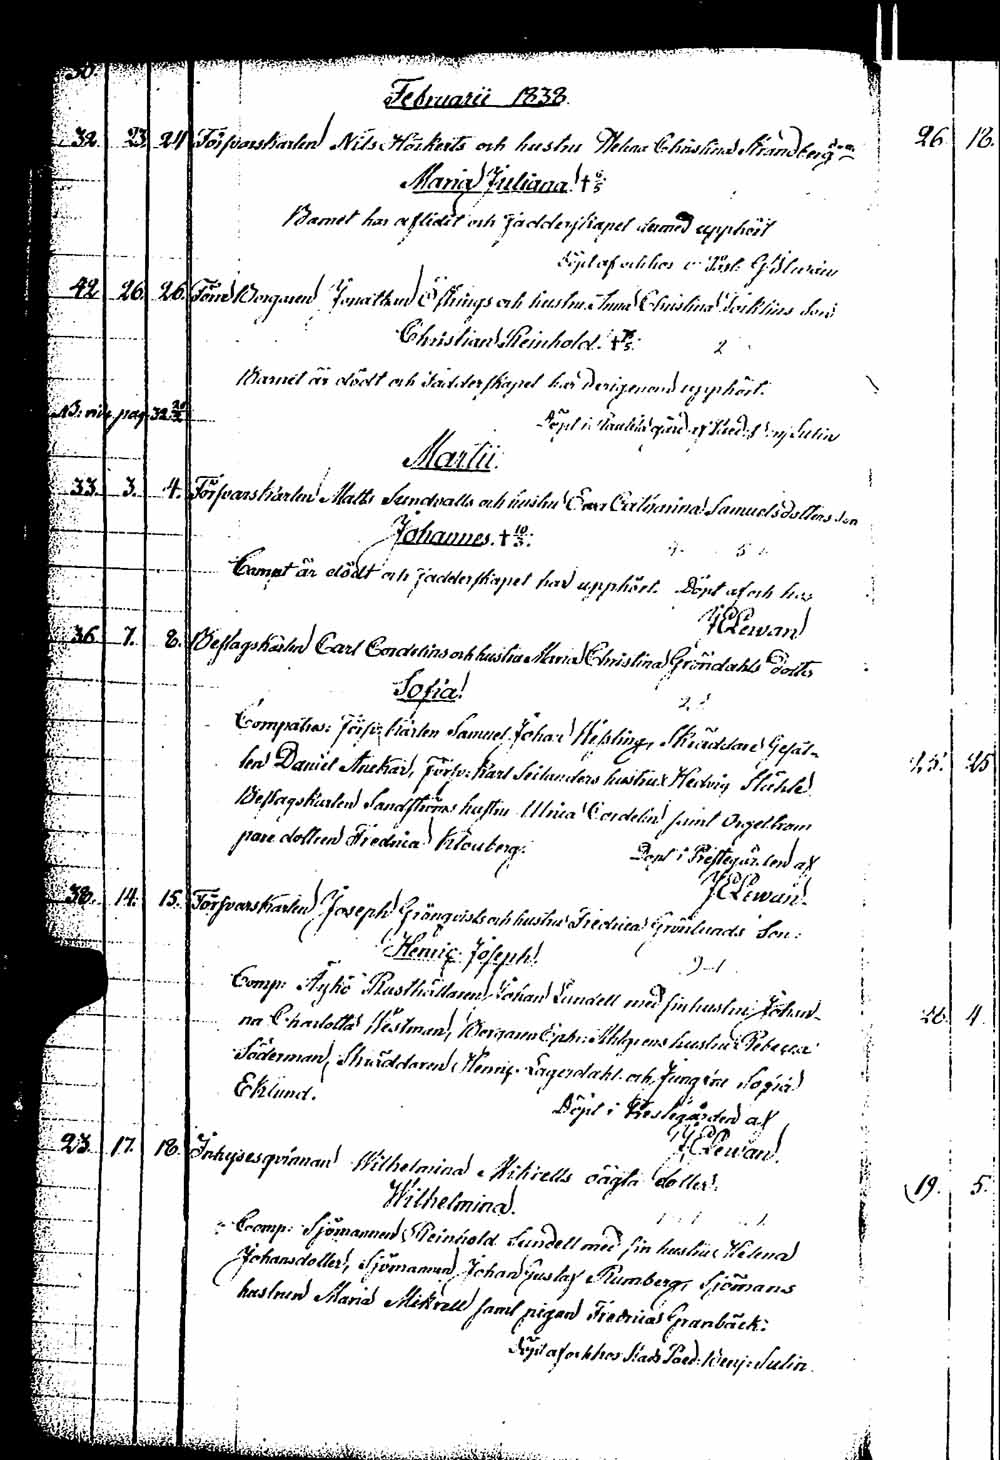 30.
Februarii 1838.
32. 23. 24. Försvarskarlen Nils Hörkerts och hustru Helena Christina Strandberg
Maria Juliana. †
Barnet har aflidit och fadderskapet dermed upphört
Döpt af och hos
42 26. 26. Förre Borgaren Jonathan Öfhings och hustru Anna Christina Son
Christian Reinhold. † 2
Barnet är dödt och fadderskapet har derigenom upphört.
NB. vid. pag. 32
Döpt i gård af Sulin
Martii.
33. 3. 4. Försvarskarlen Matts Sundvalls och hustru Eva Catharina Samuelsdotters Son
Johannes. † 10/3.
Barnet är dödt och fadderskapet har upphört. Döpt af och hos
Lewan
36. 7. 8. Beslagskarlen Carl Cordelins och hustru Maria Christina Gröndahls dotter
Sofia.
Compatres: Försv: karlen Samuel Johan Hesling, Skräddare Gesäl-
len Daniel Anckar, Försv: karl Seilanders hustru Hedvig Ståhle
Beslagskarlen Sandströms hustru Ulrica Cordelin samt Orgeltram
pare dottren Fredrica Klouberg.
Döpt i Prestegården af
Lewan.
38. 14. 15. Försvarskarlen Joseph Grönqvists och hustru Fredrica Grönlunds Son:
Henric Joseph.
Comp: Äyhö Rusthållaren Johan Lundell med sin hustru Johan-
na Charlotta Westman, Borgaren Eph: Ahlgrens hustru Rebecca
Söderman, Skräddaren Henric Lagerdahl och Jungfru Sofia
Eklund.
Döpt i Prestegården af
Lewan.
23. 17. 18. Inhysesqvinnan Wilhelmina Mikrells oägta dotter.
Wilhelmina.
Comp: Sjömannen Reinhold Sundell med sin hustru Helena
Johansdotter, Sjömannen Johan Gustaf Rumberg, Sjömans
hustrun Maria Mikrell samt pigan Fredrica Granbäck.
Döpt af och hos Benj: Sulin.
26 18.
25. 25
26. 4.
19. 5.